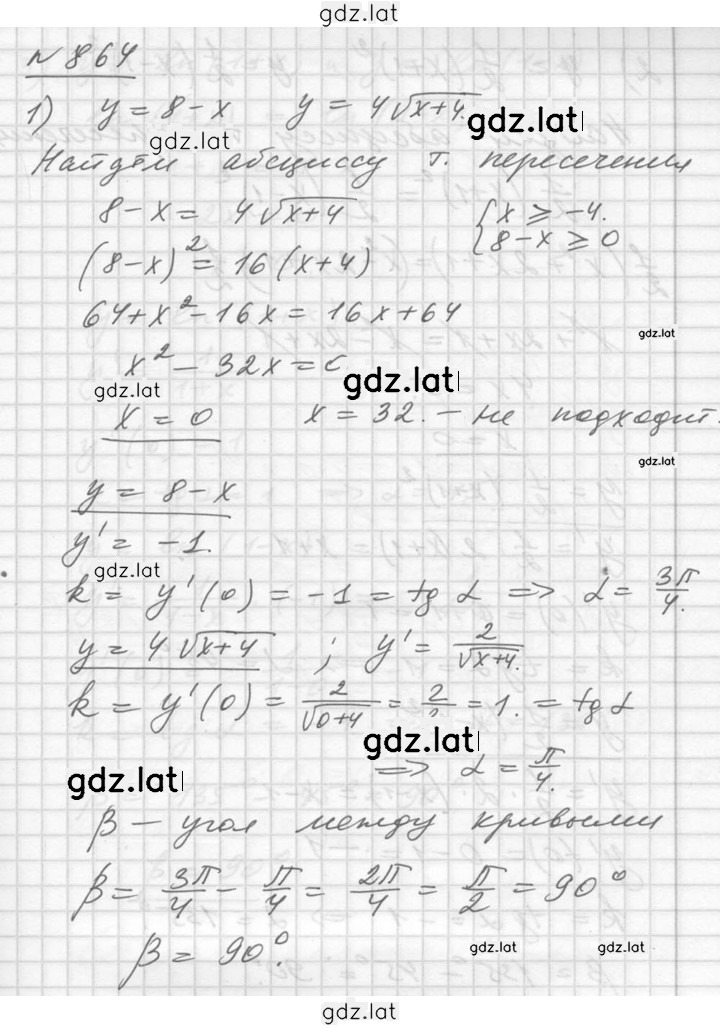 gdz.lat
№ 864
1) y = 8 - x y = 4√(x+4).
gdz.lat
gdz.lat
Найдём абсциссу т. пересечения
8 - x = 4√(x+4) { x ⩾ -4.
(8 - x)² = 16(x+4) { 8 - x ⩾ 0
64 + x² - 16x = 16x + 64
gdz.lat
x² - 32x = 0
gdz.lat
gdz.lat
x = 0 x = 32. - не подходит.
gdz.lat
y = 8 - x
y' = -1.
gdz.lat
k = y'(0) = -1 = tg α => α = 3π/4.
y = 4√(x+4) ; y' = 2/√(x+4).
k = y'(0) = 2/√(0+4) = 2/2 = 1. = tg α
gdz.lat
=> α = π/4.
gdz.lat
β - угол между кривыми
β = 3π/4 - π/4 = 2π/4 = π/2 = 90°
β = 90°.
gdz.lat gdz.lat
gdz.lat